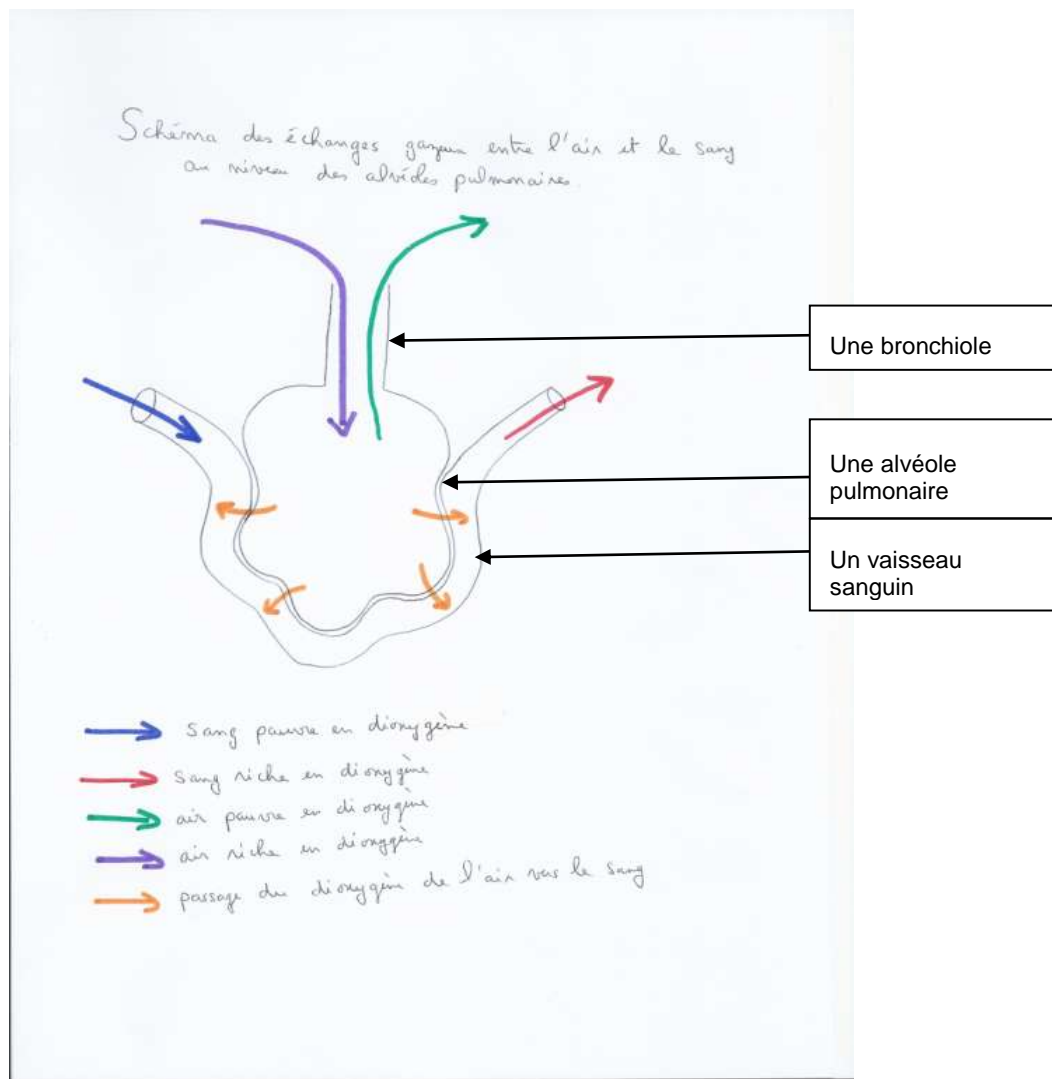 Schéma des échanges gazeux entre l'air et le sang
au niveau des alvéoles pulmonaires.
Une bronchiole
Une alvéole
pulmonaire
Un vaisseau
sanguin
Sang pauvre en dioxygène
Sang riche en dioxygène
air pauvre en dioxygène
air riche en dioxygène
passage du dioxygène de l'air vers le sang